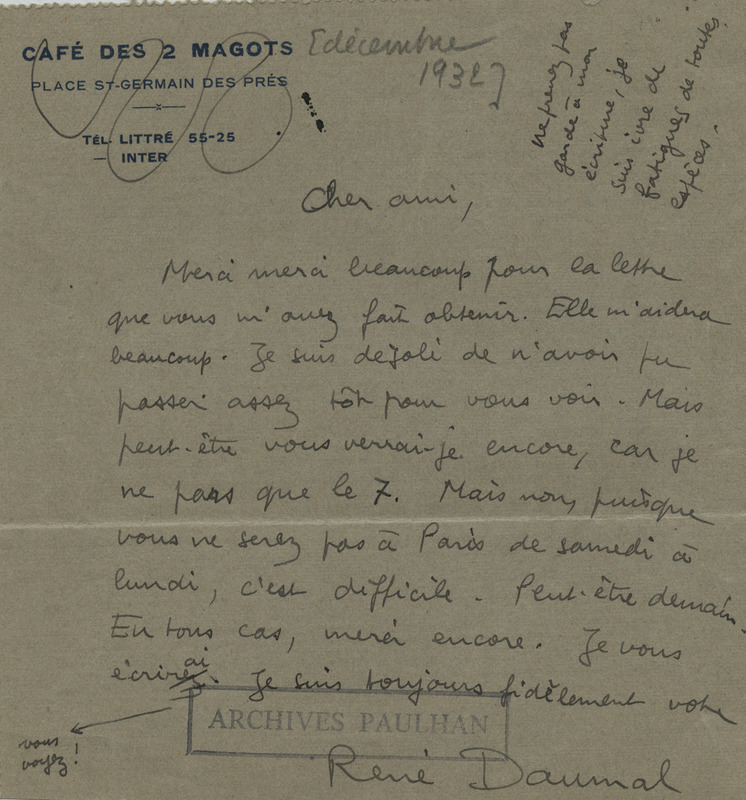 CAFÉ DES 2 MAGOTS
PLACE ST-GERMAIN DES PRÉS
TÉL. LITTRÉ 55-25
— INTER
[décembre
1932]
ne prenez pas
garde à mon
écriture, je
suis ivre de
fatigues de toutes
espèces.
Cher ami,
Merci merci beaucoup pour la lettre
que vous m'avez fait obtenir. Elle m'aidera
beaucoup. Je suis désolé de n'avoir pu
passer assez tôt pour vous voir. Mais
peut-être vous verrai-je encore, car je
ne pars que le 7. Mais non, puisque
vous ne serez pas à Paris de samedi à
lundi, c'est difficile. Peut-être demain.
En tous cas, merci encore. Je vous
écrirai. Je suis toujours fidèlement votre
vous
voyez!
ARCHIVES PAULHAN
René Daumal